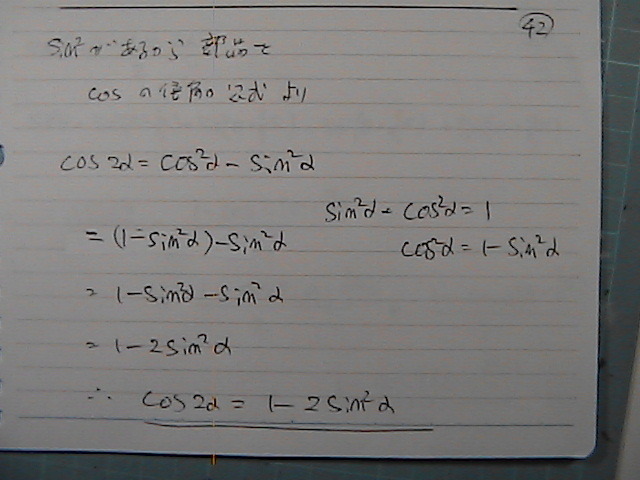 42
sin²があるから 部品で
cos の倍角の公式より
cos 2α = cos²α - sin²α
sin²α + cos²α = 1
= (1 - sin²α) - sin²α
cos²α = 1 - sin²α
= 1 - sin²α - sin²α
= 1 - 2 sin²α
∴ cos 2α = 1 - 2 sin²α